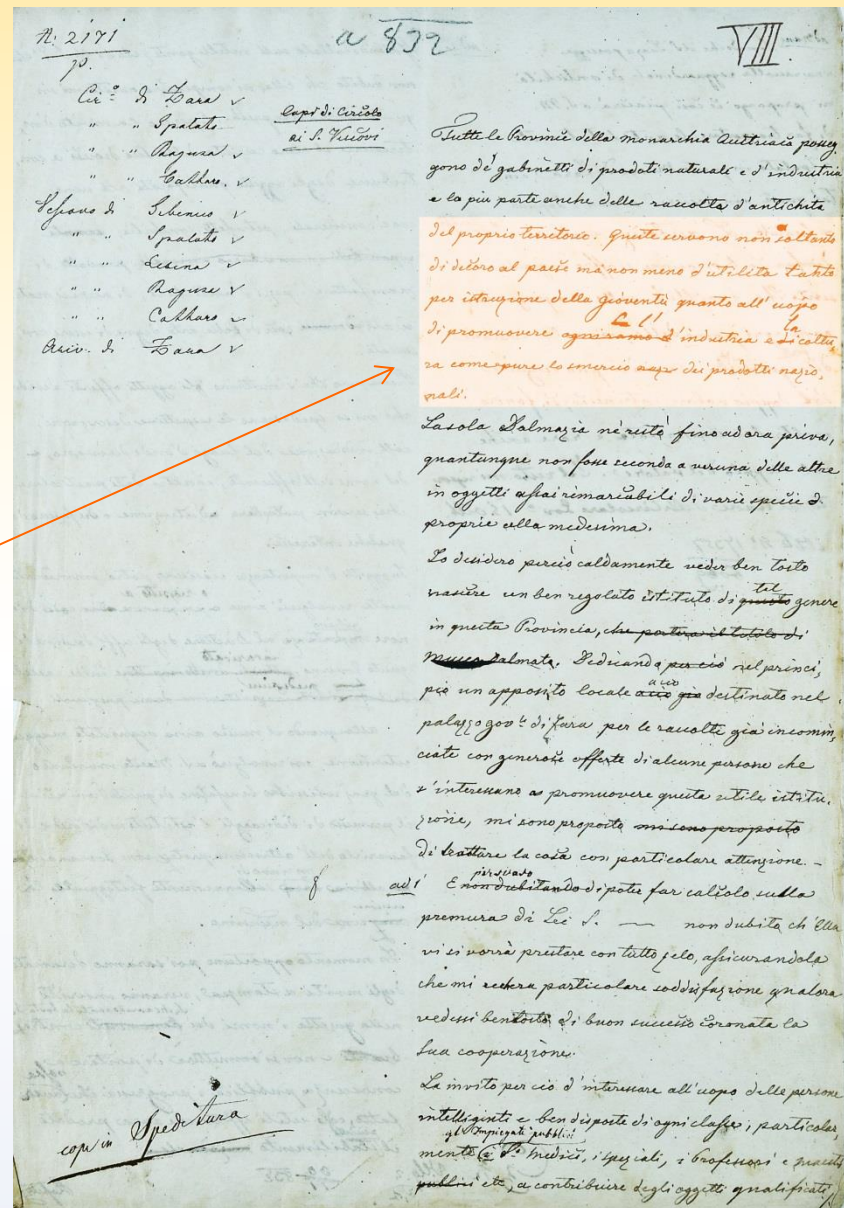 N: 2171
p.
a 832
VIII
Circ.º di Zara v
" " Spalato
" " Ragusa v
" " Cattaro. v
Vescovo di Sibenico v
" " Spalato v
" " Lesina v
" " Ragusa v
" " Cattaro v
Arciv. di Zara v
Capi di Circolo
ai S. Vescovi
Tutte le Provincie della monarchia Austriaca posseg,
gono de' gabinetti di prodoti naturali e d'industria
e la più parte anche delle raccolta d'antichità
del proprio territorio. Queste servono non soltanto
di decoro al paese mà non meno d'utilità tanto
per istruzione della gioventù quanto all'uopo
di promuovere ogni ramo d' l'industria e la coltu,
ra come pure lo smercio dei prodotti nazio,
nali.
La sola Dalmazia nè restò fino ad ora priva,
quantunque non fosse seconda a veruna delle altre
in oggetti assai rimarcabili di varie specie e
proprie alla medesima.
Io desidero perciò caldamente veder ben tosto
nascere un ben regolato istituto di questo tal genere
in questa Provincia, che porterà il titolo di
Museo Dalmata. Dedicando per ciò nel princi,
pio un apposito locale destinato nel
palazzo gov.le di Zara per le raccolte già incomin,
ciate con generose offerte di alcune persone che
s'interessano a promuovere questa utile istitu,
zione, mi sono proposto mi sono proposto
di trattare la cosa con particolare attenzione. –
ad 1 E non dubitando persuaso di poter far calcolo sulla
premura di Lei S. — non dubito ch'Ella
vi si vorrà prestare con tutto zelo, assicurandola
che mi recherà particolare soddisfazione qualora
vedessi bentosto di buon successo coronata la
sua cooperazione.
La invito per ciò d'interessare all'uopo delle persone
intelligenti e ben disposte di ogni classe, particolar,
gl'Impiegati pubblici
mente i Sri. medici, i speziali, i Professori e
pubblici etc, a contribuire degli oggetti qualificati
copi in Speditura